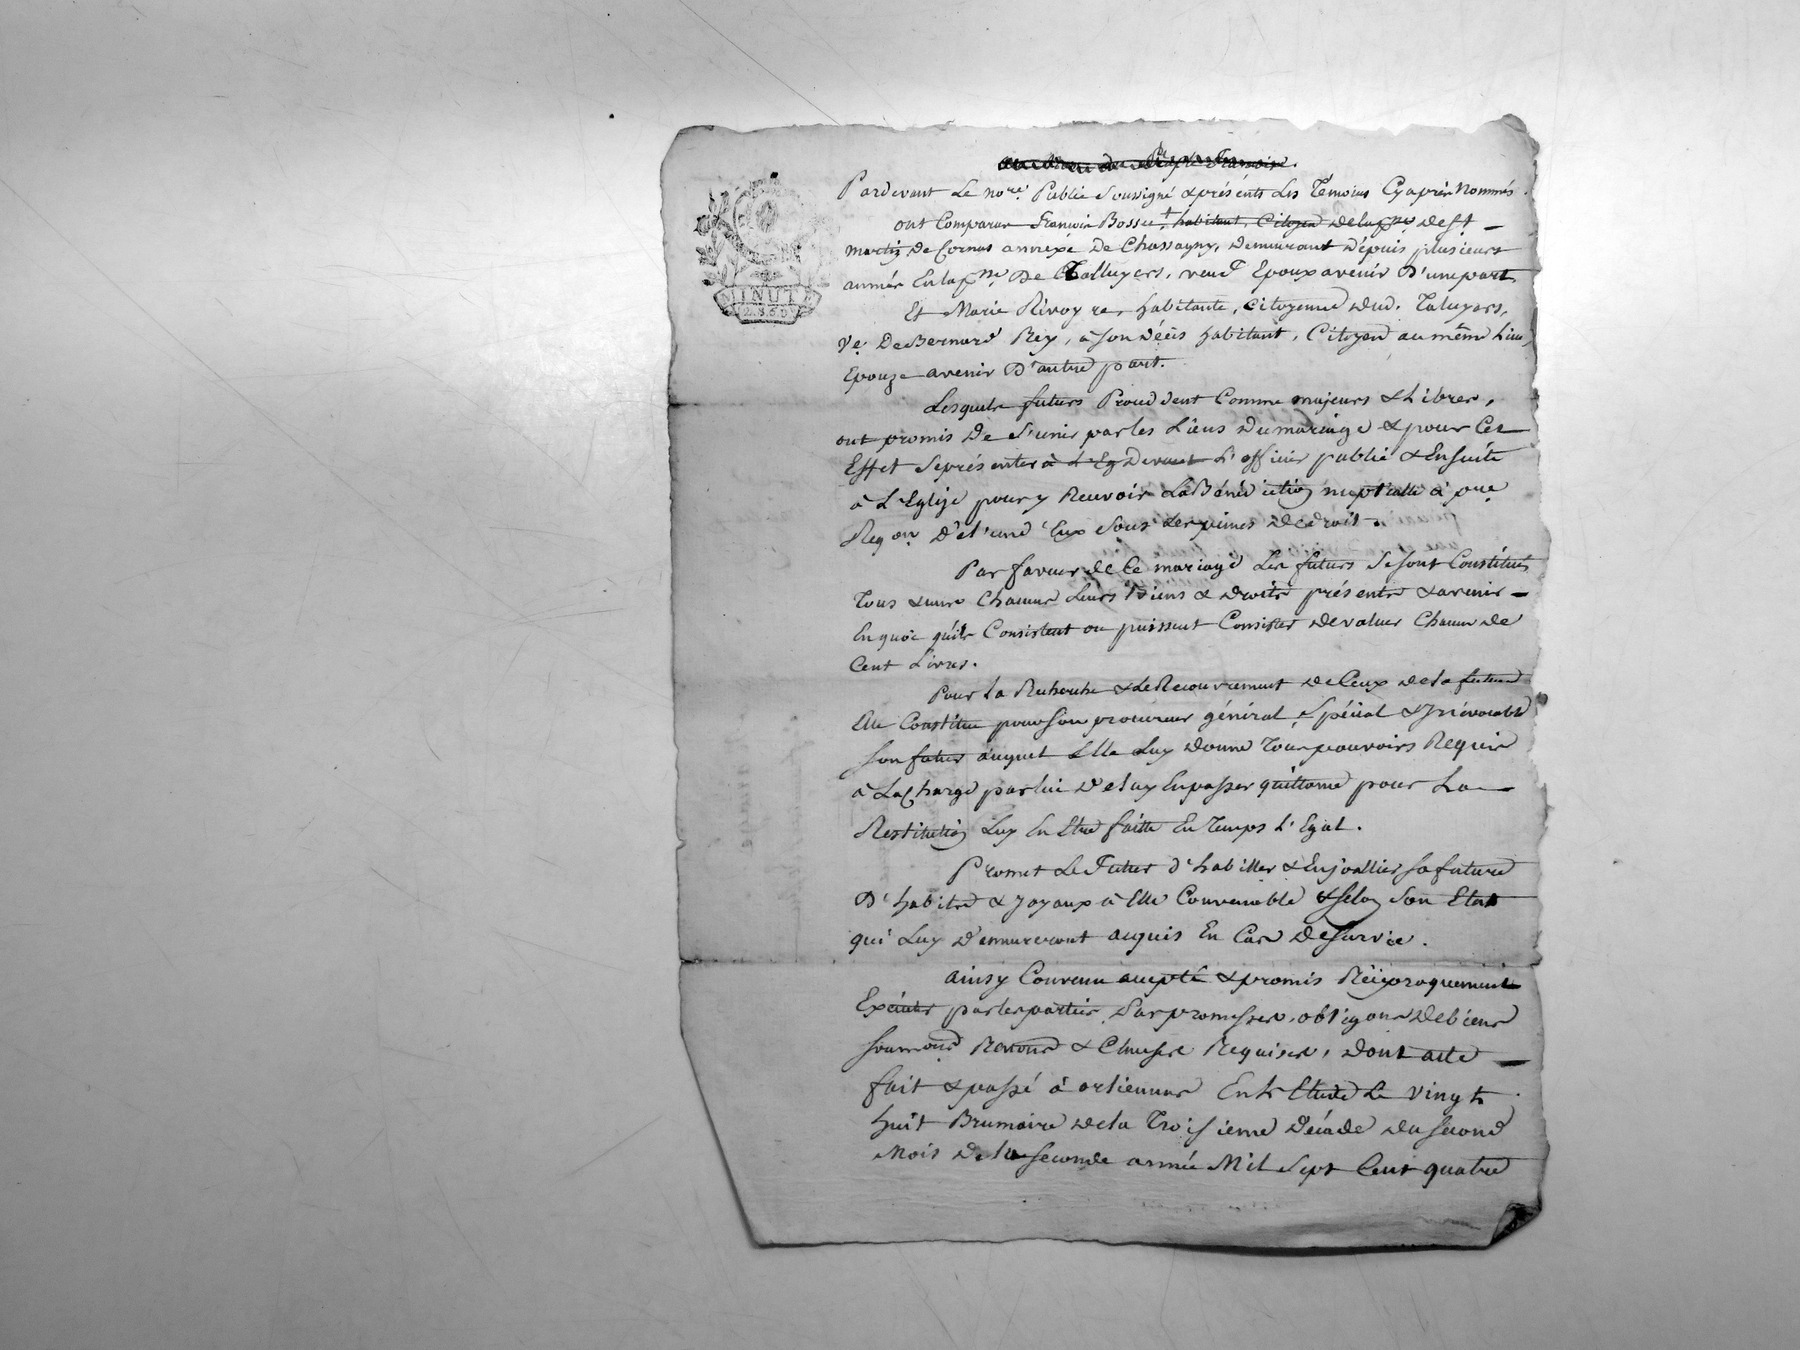 Pardevant Le no.re Public Soussigné & présents Les Témoins Cyaprès Nommés.
ont Comparus François Bossu habitant, Citoyen delap.sse de St
martin de Cornas annexe De Chassagny, demeurant Depuis plusieurs
année Enlap.sse De Talluyers, veuf Epoux avenir D'unepart
Et Marie Rivoyre, habitante, Citoyenne dud. Taluyers,
Ve. DeBernard Rey, à son Décès habitant, Citoyen au même Lieu,
Epouze avenir D'autre part.
Lesquels futurs Procedent Comme majeurs & Libres,
ont promis De S'unir par les Liens Dumariage & pour Cet
Effet Seprésenter à L'Eg Devant L'officier public & Ensuite
à L'Eglise pour y Recevoir LaBénédiction nuptialle à p.re
Req.on De L'une d'Eux Sous Les peines De droit.
Par faveur de Ce mariage Les futurs Se sont Constitués
Tous & uns Chacuns Leurs Biens & droits présents & avenir
En quoi qu'ils Consistent ou puissent Consister de valeur Chacun de
Cent Livres.
Pour La Recherche & Le Recouvrement de Ceux de la future
Elle Constitue pour Son procureur général, Spécial & Irrévocable
Son futur auquel Elle Luy donne Tous pouvoirs Requis
à La Charge par lui De Luy En passer quittance pour La
Restitution Luy En Etre faitte En Temps L'Egal.
Promet Le Futur d'habiller & Enjoallier Sa future
D'habits & Joyaux à Elle Convenable & Selon Son Etat
qui Luy Demeureront acquis En Cas De Survie.
ainsy Convenu accepté & promis Réciproquement
Exécuter par les parties, Par promesses, obligons De biens
Soumons Renons & Clauses Requises, dont acte
fait & passé à orlienas En L'Etude Le vingt
huit Brumaire de la Troisieme Décade du Second
Mois De la Seconde année Mil Sept Cent quatre
MINUTE